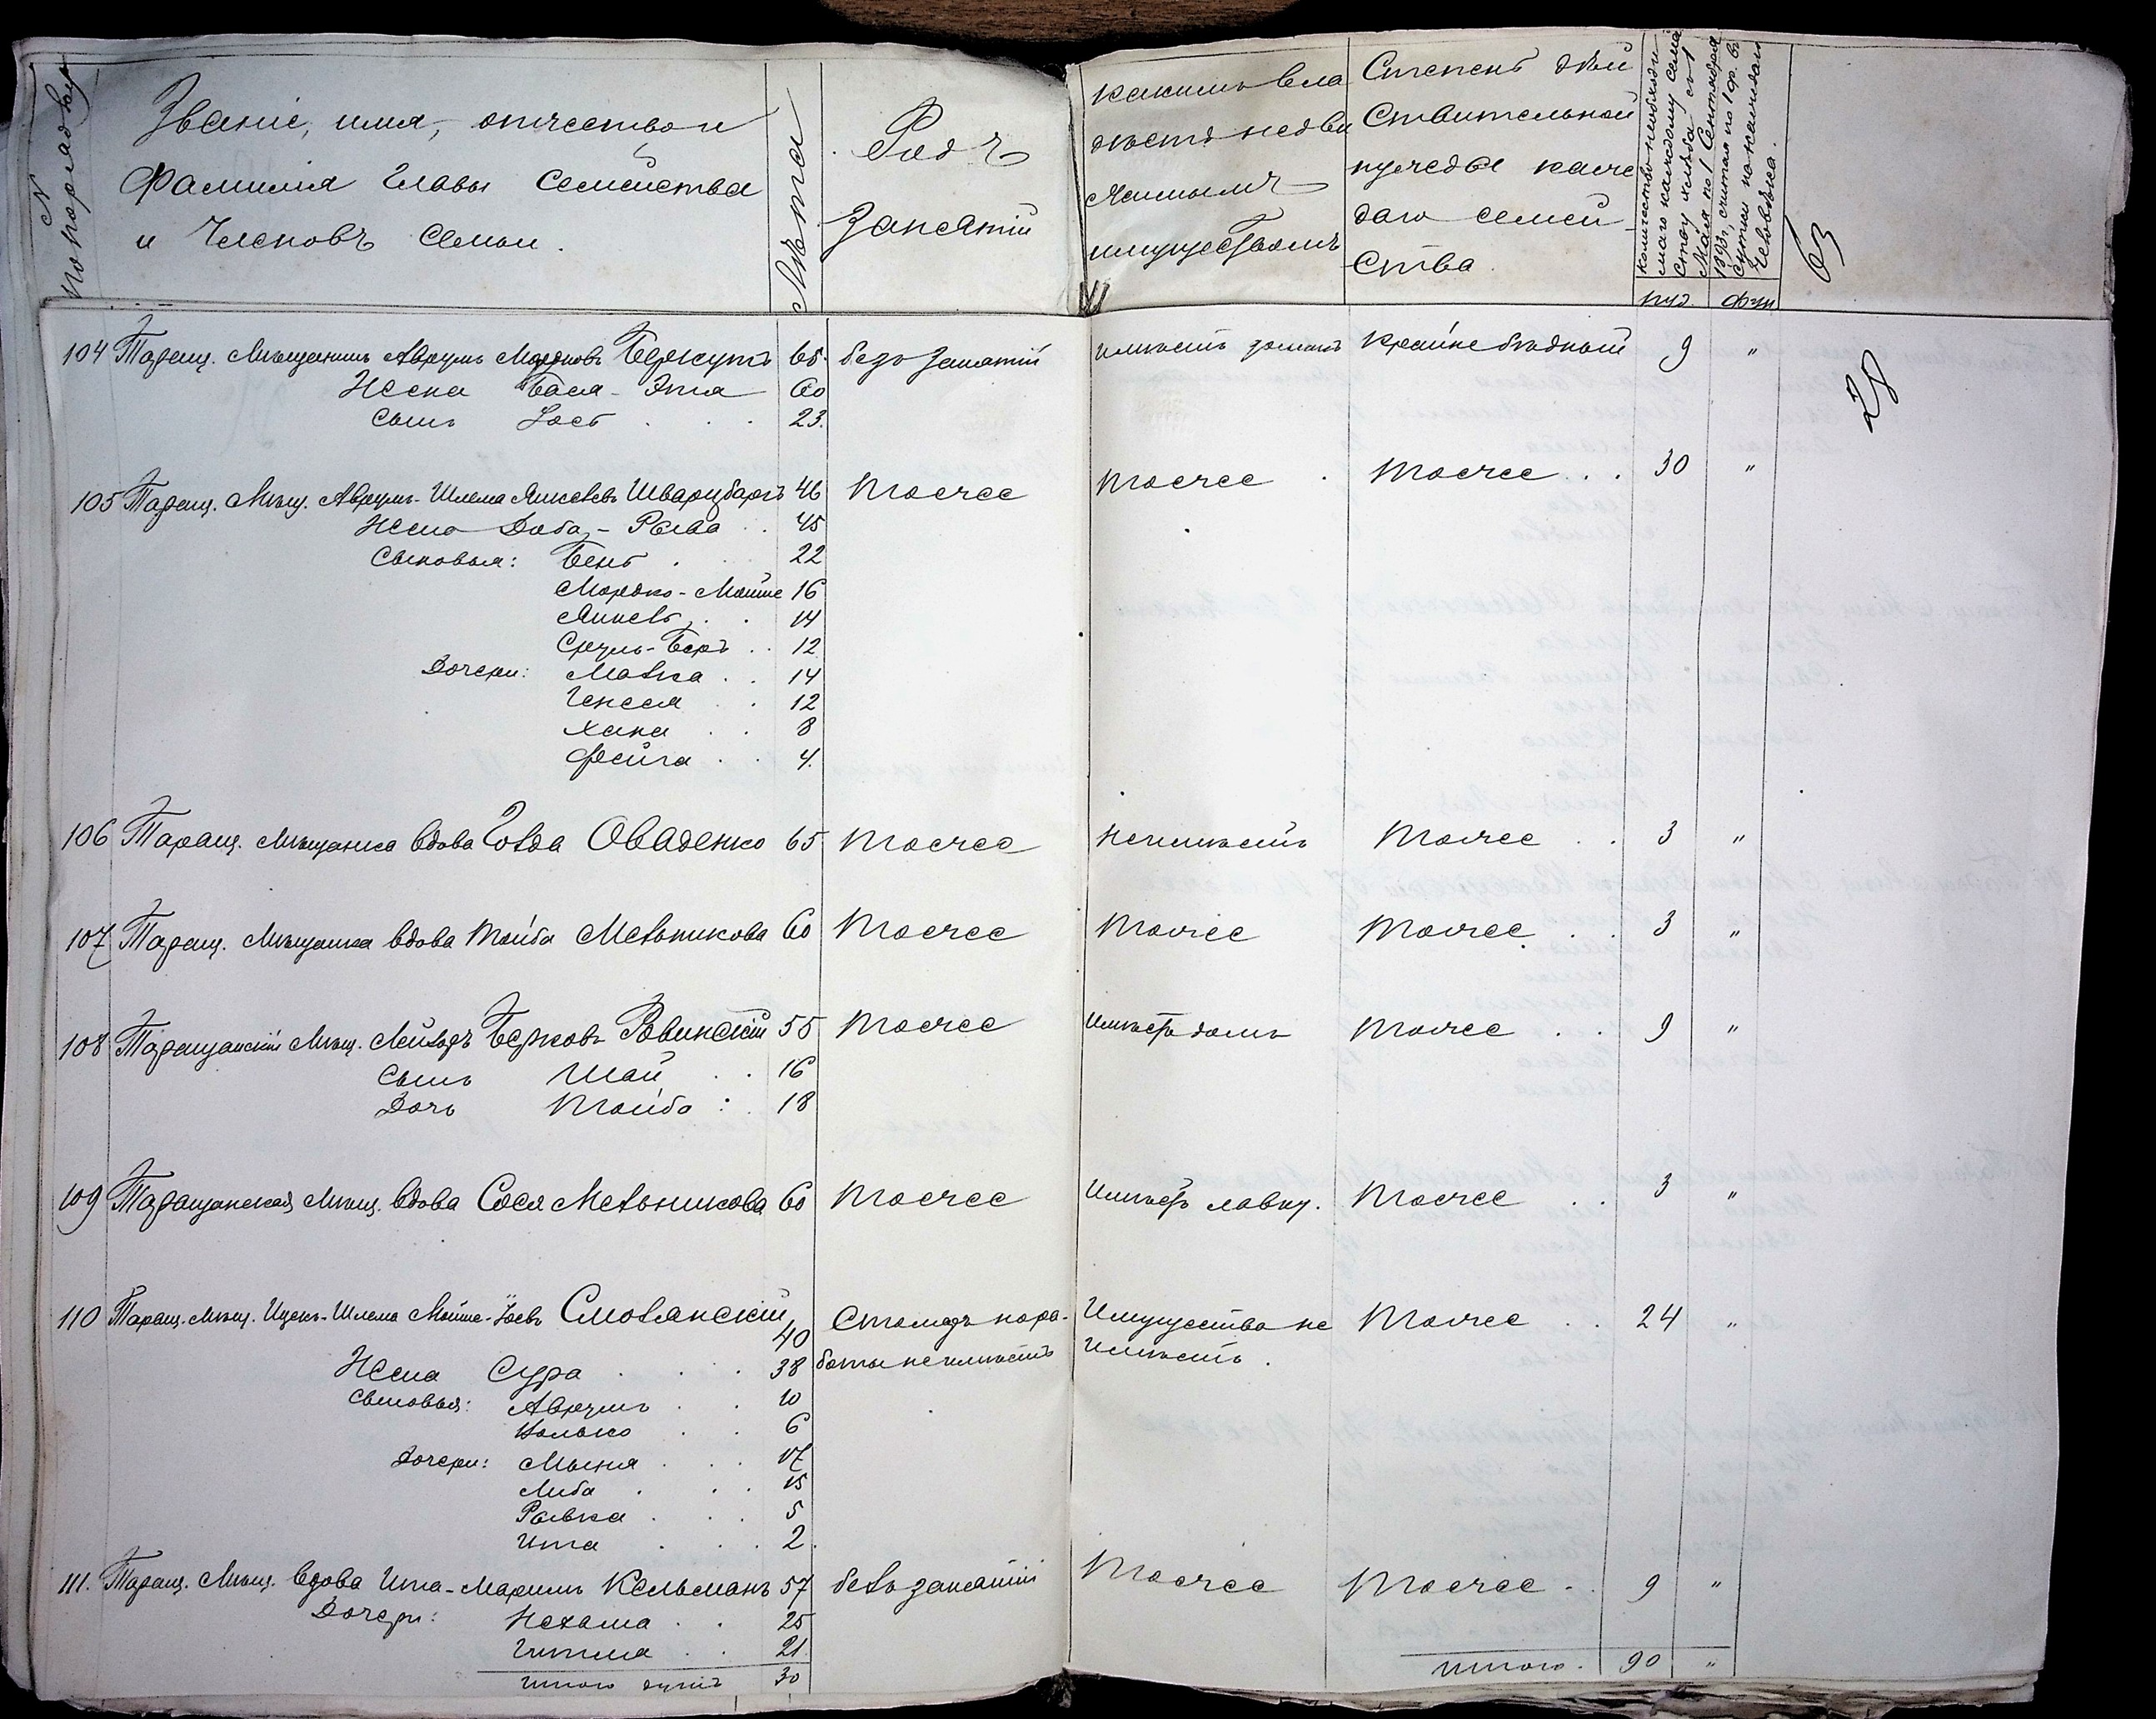 № по порядку
Званіе, имя, отчество и
Фамилія Главы Семейства
и Членовъ Семьи.
Лѣта
Родъ
Занятій
какимъ вла
дѣетъ недви
жимымъ
имуществомъ
Степень дѣй
ствительной
нужды каж
даго семей-
ства.
Количество необходи
маго каждому семей
ству хлѣба съ 1
Мая по 1 Сентября
1893 г, считая по 1 ф. въ
сутки на каждаго
человѣка.
пуд. фун
63
28
104 Таращ. Мѣщанинъ Аврумъ Мордковъ Беркутъ 65. безъ занятій имѣетъ домикъ крайне бѣдный 9 "
Жена Бася-Эта 60
Сынъ Іось . . . 23.
105 Таращ. Мѣщ. Аврумъ-Шлема Янкелевъ Шварцбардъ 46 тоже тоже . тоже . . . 30 "
Жена Доба-Рыва . . 45
Сыновья: Бень . . 22
Мордко-Мойше 16
Янкель . . 14
Сруль-Беръ . . 12
Дочери: Малка . . 14
Генеся . . 12
Хана . . 8
Фейга . . 4.
106 Таращ. Мѣщанка вдова Голда Оваденко 65 тоже неимѣетъ тоже . . 3 "
107 Таращ. Мѣщанка вдова Тойба Мельникова 60 тоже тоже тоже . . 3 "
108 Таращанскій Мѣщ. Лейзоръ Берковъ Ровинскій 55 тоже Имѣетъ домъ тоже . . 9 "
Сынъ Шай . . 16
Дочь Тойба : . 18
109 Таращанская Мѣщ. вдова Сося Мельникова 60 тоже Имѣетъ лавку. тоже . . 3 "
110 Таращ. Мѣщ. Ицекъ-Шлема Мойше-Іоевъ Смолянскій 40 Столяръ нора- Имущества не тоже . . 24 "
Жена Сура . . . 38 боты не имѣетъ имѣетъ.
Сыновья: Аврумъ . . 10
. . 6
Дочери: Мыня . . . 17
Либа . . . 15
Рывка . . . 5
Ита . . . 2.
111. Таращ. Мѣщ. вдова Ита-Маримъ Кельманъ 57 безъ занятій тоже тоже . . 9 "
Дочери: Нехама . . 25
Гитля . . 21.
итого душъ 30
итого. 90 "